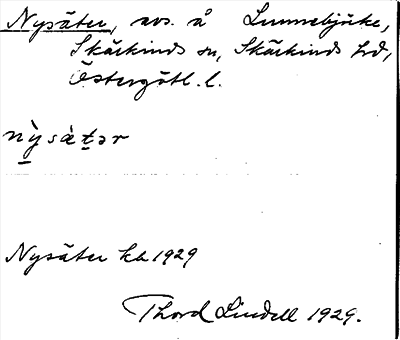 Nysäter, avs. å Lummebjörke,
Skärkinds sn, Skärkinds hd,
Östergötl. l.
nỳsàtər
Nysäter kb 1929
Thord Lindell 1929.